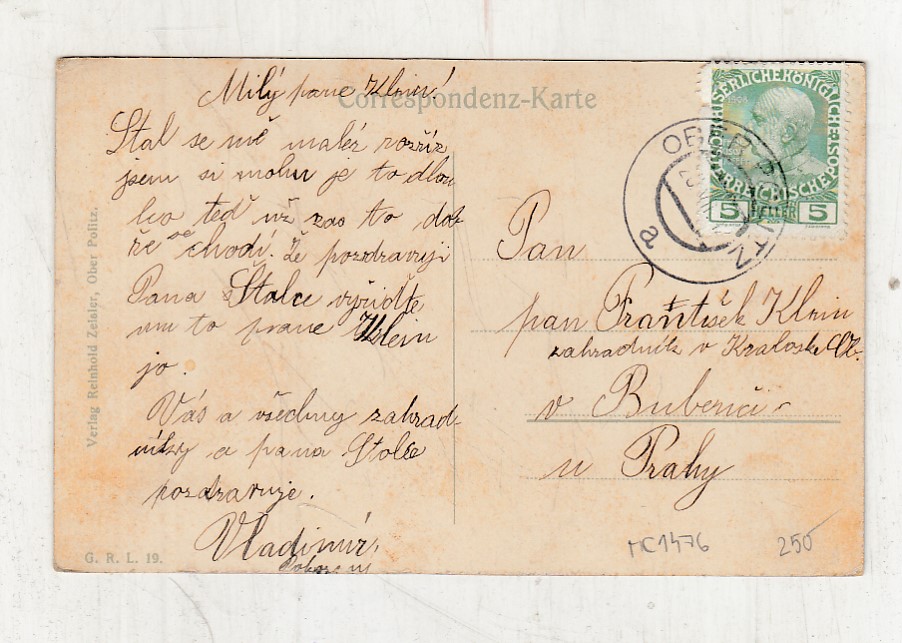 Correspondenz-Karte
Milý pane Klein!
Stal se mě malér rozříz
jsem si nohu je to dlou
ho teď už zas to dob
ře se chodí. Že pozdravuji
Pana Stolce vyřiďte
mu to pane Klein
jo.
Vás a všechny zahrad
níky a pana Stolce
pozdravuje.
Vladimír
Verlag Reinhold Zeisler, Ober Politz.
G. R. L. 19.
KAISERLICHEKÖNIGLICHE
ÖSTERREICHISCHE POST
5 HELLER 5
OBER
a
Pan
pan František Klein
zahradník v Kralovske
v Bubenči
u Prahy
MC1476
250